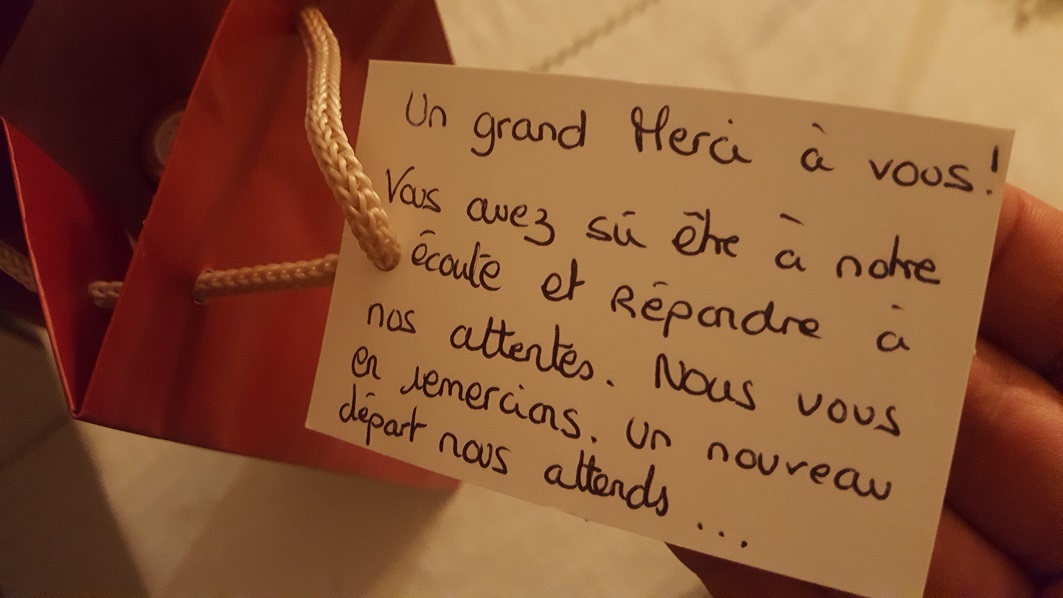 Un grand Merci à vous!
Vous avez sû être à notre
écoute et Répondre à
nos attentes. Nous vous
en remercions. Un nouveau
départ nous attends...